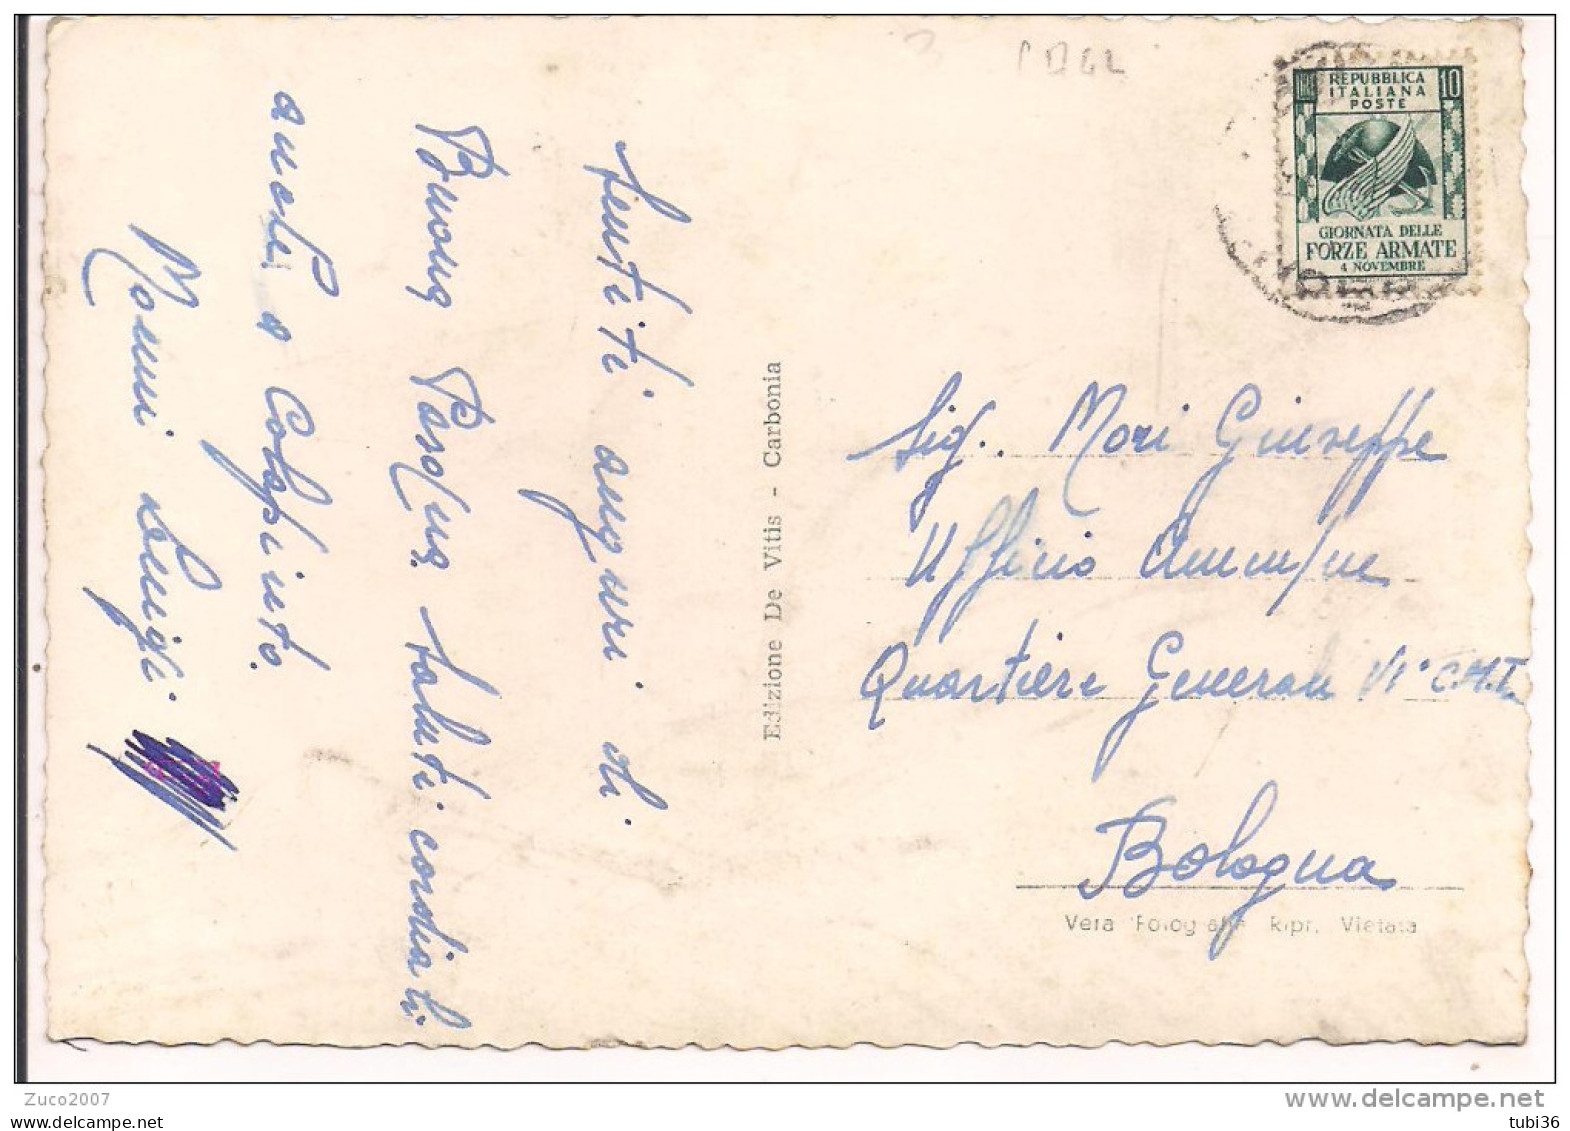 Sentiti auguri di
Buona Pasqua saluti cordiali
anche a Colapinto.
Nonni Luigi
Edizione De Vitis - Carbonia
P D G L
LIRE 10
REPUBBLICA
ITALIANA
POSTE
GIORNATA DELLE
FORZE ARMATE
4 NOVEMBRE
Sig. Mori Giuseppe
Ufficio Amm/ne
Quartiere Generale VI° C.M.T.
Bologna
Vera Fotografia Ripr. Vietata
Zuco2007
www.delcampe.net
tubi36